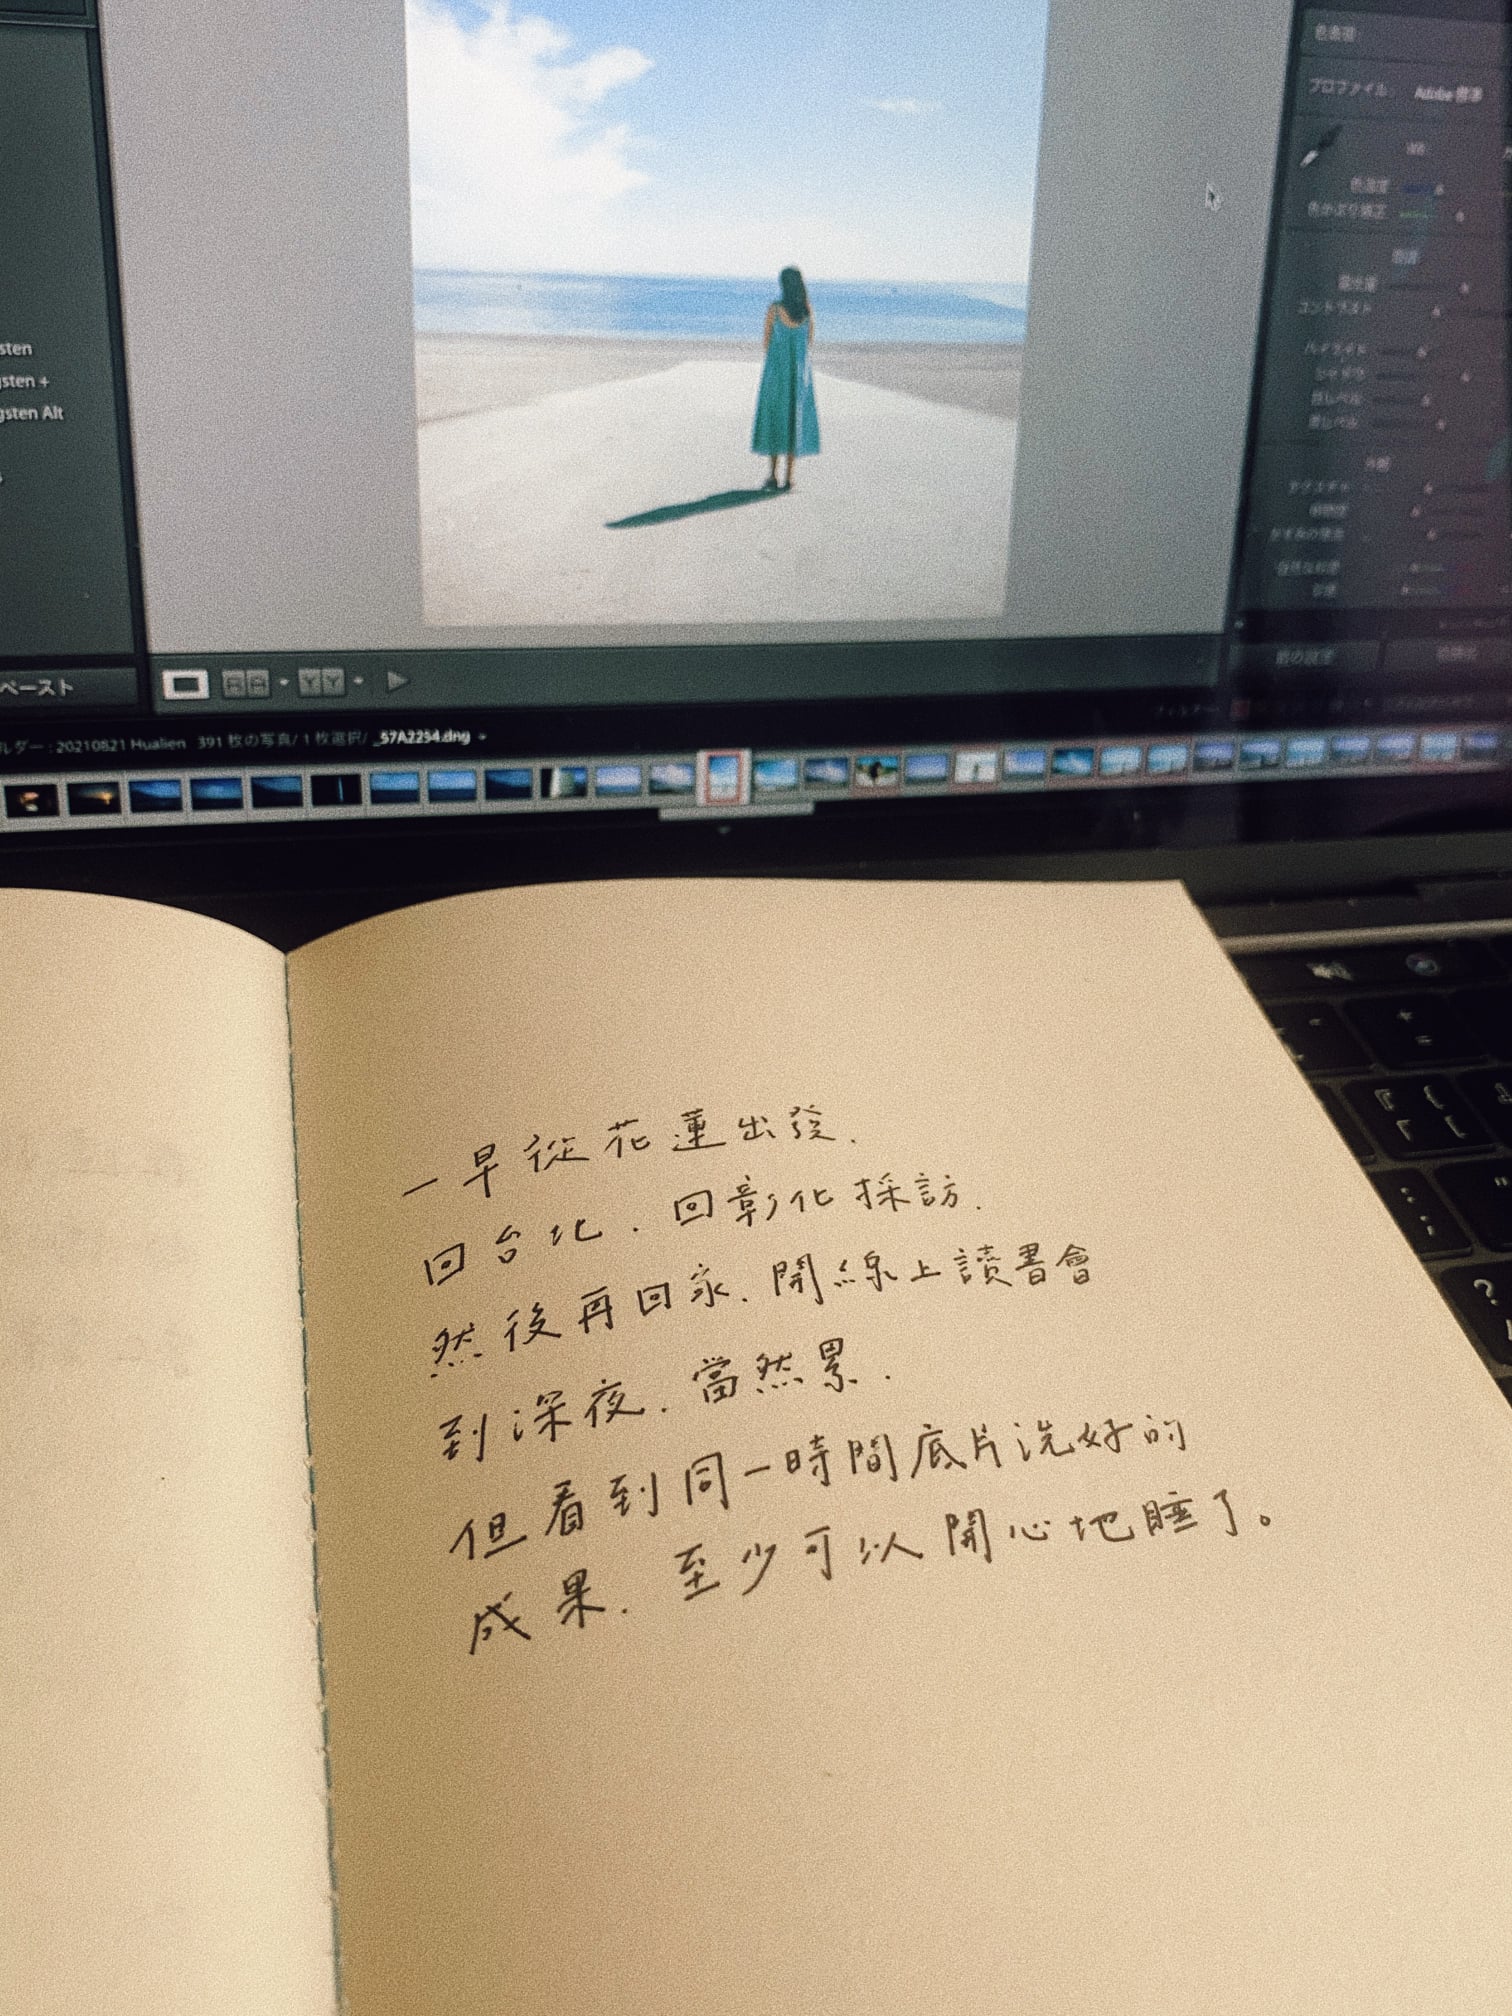 色表現
プロファイル: Adobe 標準
色温度
色かぶり補正
露光量
コントラスト
ハイライト
シャドウ
白レベル
黒レベル
外観
テクスチャ
明瞭度
かすみの除去
自然な彩度
彩度
sten
gsten +
gsten Alt
ペースト
前の設定
ルダー : 20210821 Hualien 391 枚の写真/ 1 枚選択/ _57A2254.dng
フィルター:
一早從花蓮出發.
回台北.回彰化採訪.
然後再回家.開線上讀書會
到深夜.當然累.
但看到同一時間底片洗好的
成果.至少可以開心地睡了。